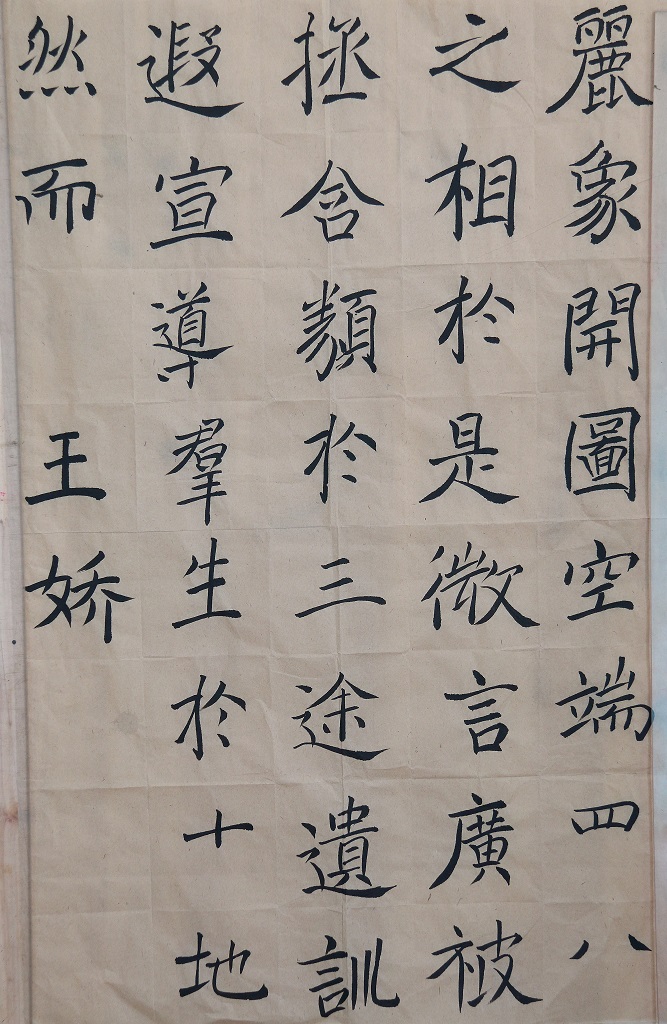 麗象開圖空端四八
之相於是微言廣被
拯含類於三途遺訓
遐宣導羣生於十地
然而 王娇